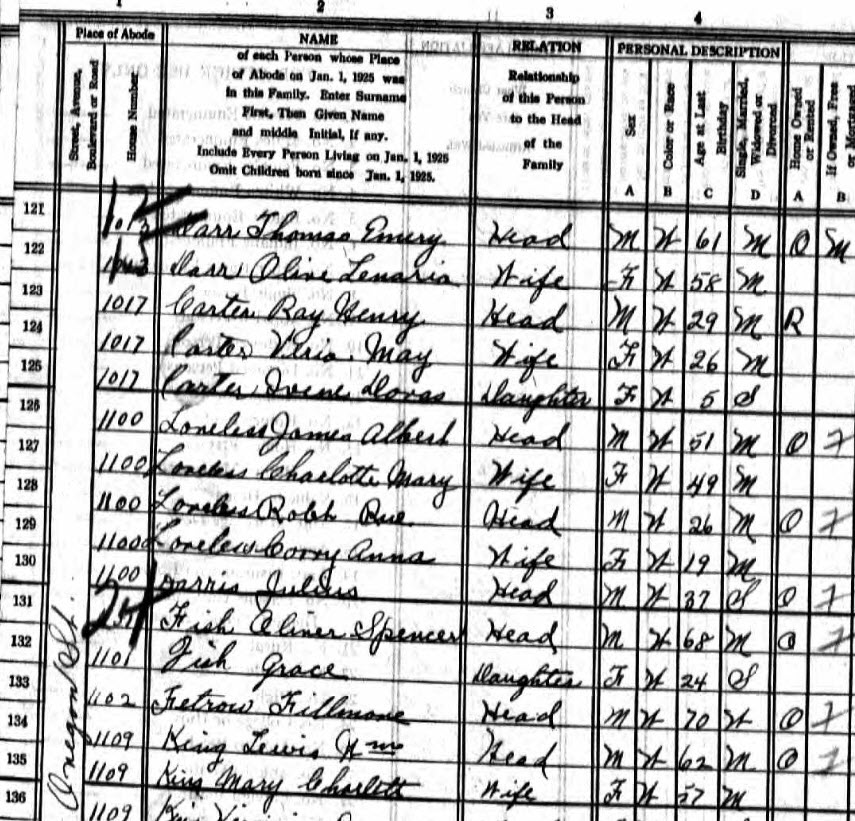 1 2 3 4
Place of Abode
Street, Avenue, Boulevard or Road
House Number
NAME
of each Person whose Place
of Abode on Jan. 1, 1925 was
in this Family. Enter Surname
First, Then Given Name
and middle Initial, if any.
Include Every Person Living on Jan. 1, 1925
Omit Children born since Jan. 1, 1925.
RELATION
Relationship
of this Person
to the Head
of the
Family
PERSONAL DESCRIPTION
Sex
Color or Race
Age at Last Birthday
Single, Married, Widowed or Divorced
Home Owned or Rented
If Owned, Free or Mortgaged
A B C D A B
121 1013 Darr Thomas Emery Head M W 61 M O M
122 Darr Olive Lenaria Wife F W 58 M
123 1017 Carter Ray Henry Head M W 29 M R
124 1017 Carter May Wife F W 26 M
125 1017 Carter Irene Daughter F W 5 S
126 1100 Loveless James Albert Head M W 51 M O F
127 1100 Loveless Charlotte Mary Wife F W 49 M
128 1100 Loveless Ralph Head M W 26 M O F
129 1100 Loveless Anna Wife F W 19 M
130 1100 Harris Julius Head M W 37 S O F
131 24 Fish Spencer Head M W 68 M O F
132 1101 Fish Grace Daughter F W 24 S
133 1102 Fetrow Fillmore Head M W 70 W O F
134 1109 King Lewis Wm Head M W 62 M O F
135 1109 King Mary Charlott Wife F W 57 M
136 1109 King
St.